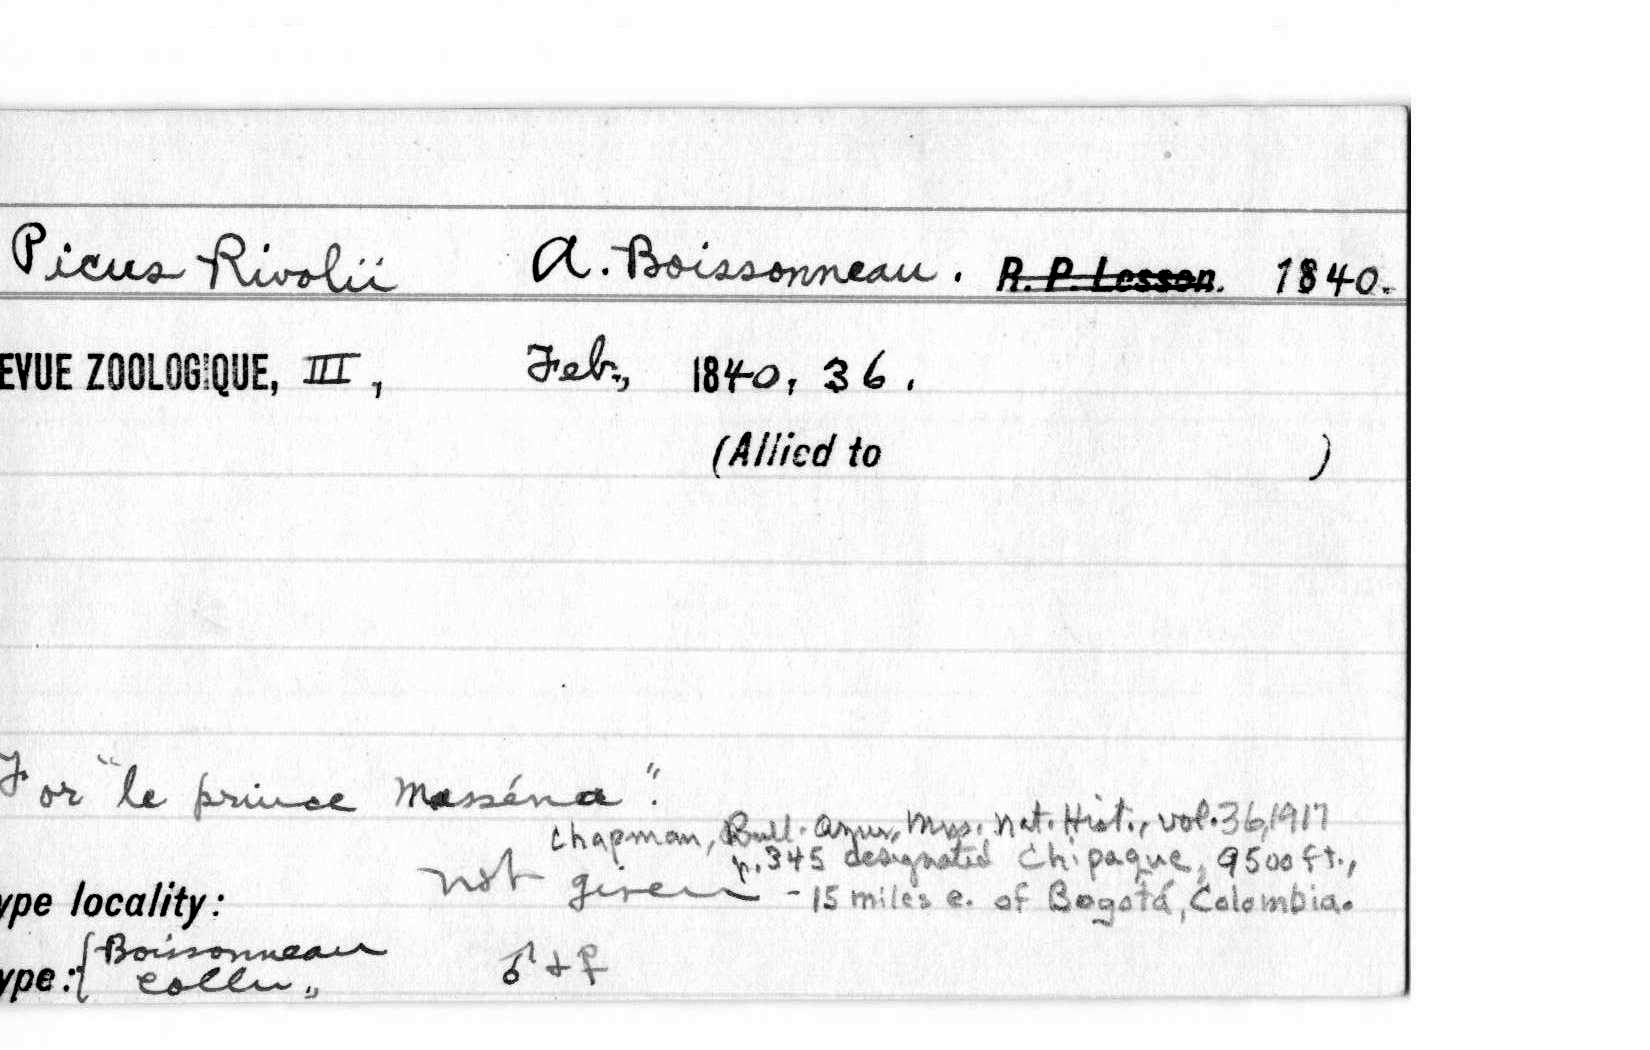 Picus Rivolii A. Boissonneau. R. P. Lesson. 1840.
EVUE ZOOLOGIQUE, III, Feb., 1840, 36.
(Allied to )
For "le prince Masséna".
Chapman, Bull. Amer. Mus. Nat. Hist., vol. 36, 1917
p. 345 designated Chipaque, 9500 ft.,
not given - 15 miles e. of Bogotá, Colombia.
ype locality:
ype: { Boissonneau
Colln. ♂ + ♀